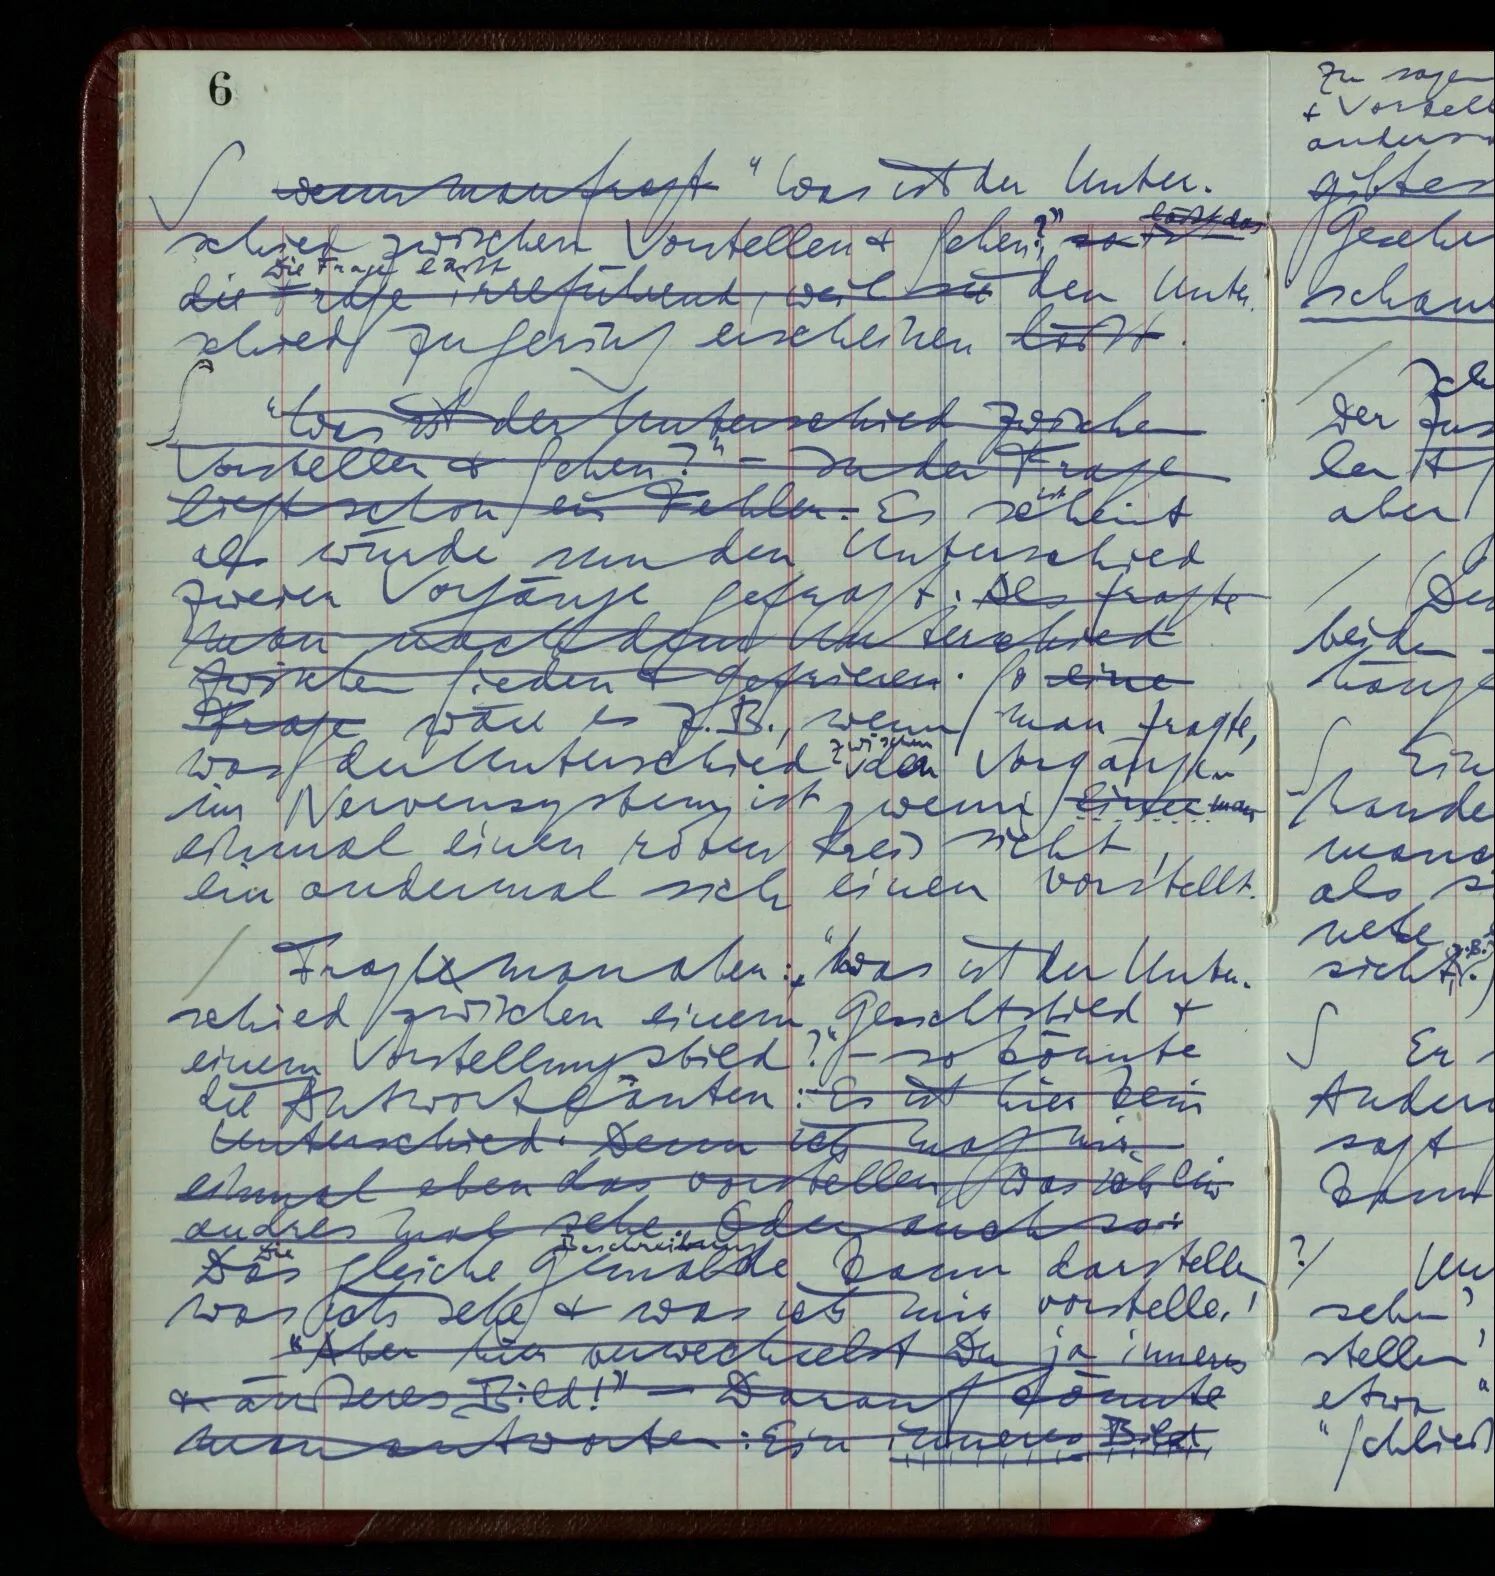 6
∫ wenn man fragt "Was ist der Unter-
schied zwischen Vorstellen & Sehen?" so ist läßt das
Die Frage läßt
die Frage irreführend, weil sie den Unter-
schied zu gering erscheinen läßt.
∫ "Was ist der Unterschied zwischen
Vorstellen & Sehen?" – In der Frage
liegt schon ein Fehler. Es scheint
ist
als würde nun den Unterschied
zweier Vorgänge gefragt. Als fragte
man nach dem Unterschied
zwischen Sieden & Gefrieren. So eine
Frage wäre es z.B., wenn man fragte,
was der Unterschied zwischen den Vorgängen
im Nervensystem ist, wenn einer man
einmal einen roten Kreis sieht,
ein andermal sich einen vorstellt.
/ Fragte man aber: "Was ist der Unter-
schied zwischen einem Gesichtsbild &
einem Vorstellungsbild?" – so könnte
die Antwort lauten: Es ist hier kein
Unterschied. Denn ich mag mir
einmal eben das vorstellen, was ich ein
andres mal sehe. Oder auch so:
Die Beschreibung
Das gleiche Gemälde kann darstellen
was ich sehe & was ich mir vorstelle.
"Aber hier verwechselst Du ja inneres
& äußeres Bild!" – Darauf könnte
man antworten: Ein inneres Bild
zu sagen
& Vorstell
anders
gibt es
Gesehe
schau
/ Ich
der Zus
len
aber
/ Die
beiden
hänge
∫ Ein
hande
manc
als s
nete
sicht, z.B.
∫ Er
Ander
sagt
kann
?/ Un
sehn'
stellen'
etwa "
"Schließ